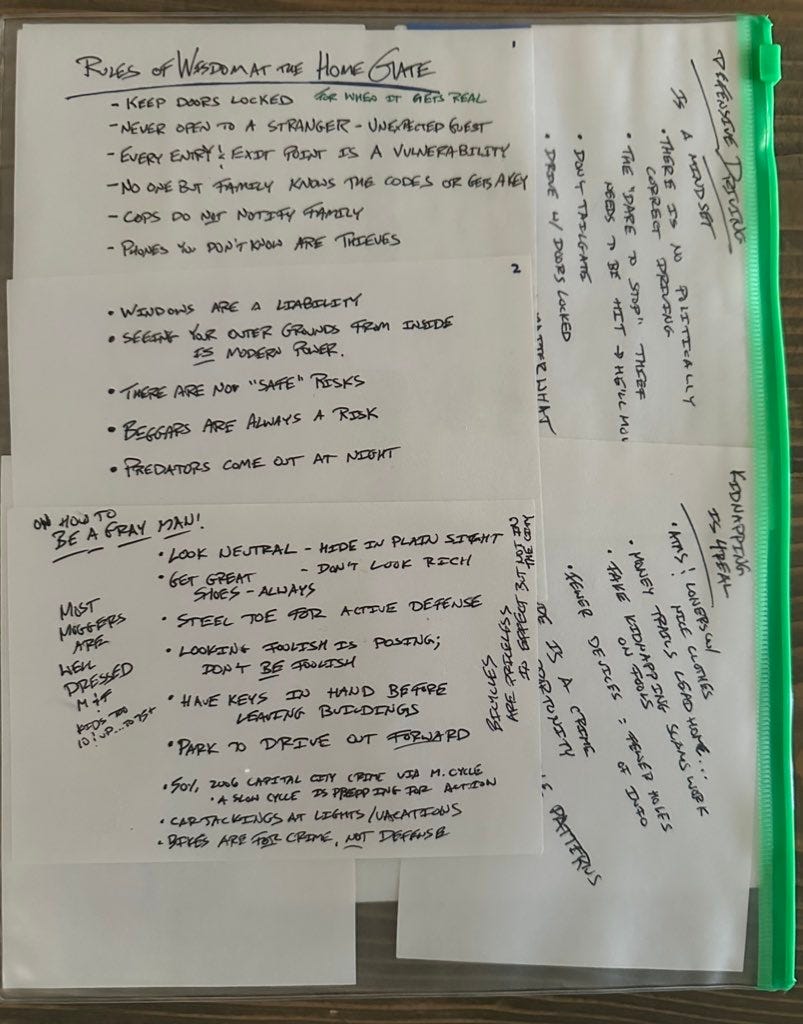 1
RULES OF WISDOM AT THE HOME GATE
- KEEP DOORS LOCKED FOR WHEN IT GETS REAL
- NEVER OPEN TO A STRANGER - UNEXPECTED GUEST
- EVERY ENTRY & EXIT POINT IS A VULNERABILITY
- NO ONE BUT FAMILY KNOWS THE CODES OR GETS A KEY
- COPS DO NOT NOTIFY FAMILY
- PHONES YOU DON'T KNOW ARE THIEVES
2
• WINDOWS ARE A LIABILITY
• SEEING YOUR OUTER GROUNDS FROM INSIDE
IS MODERN POWER.
• THERE ARE NO "SAFE" RISKS
• BEGGARS ARE ALWAYS A RISK
• PREDATORS COME OUT AT NIGHT
ON HOW TO
BE A GRAY MAN!
• LOOK NEUTRAL - HIDE IN PLAIN SIGHT
- DON'T LOOK RICH
• GET GREAT
SHOES - ALWAYS
• STEEL TOE FOR ACTIVE DEFENSE
• LOOKING FOOLISH IS POSING;
DON'T BE FOOLISH
• HAVE KEYS IN HAND BEFORE
LEAVING BUILDINGS
• PARK TO DRIVE OUT FORWARD
• 50%, 2006 CAPITAL CITY CRIME VIA M.CYCLE
• A SLOW CYCLE IS PREPPING FOR ACTION
• CARJACKINGS AT LIGHTS/VACATIONS
• BIKES ARE FOR CRIME, NOT DEFENSE
MOST
MUGGERS
ARE
WELL
DRESSED
M & F
KIDS TOO
10 & UP... TO 75+
BICYCLES
ARE PRICELESS
IN EFFECT BUT NOT IN
THE CITY
DEFENSIVE DRIVING
IS A MINDSET
• THERE IS NO POLITICALLY
CORRECT DRIVING
• THE "DARE TO STOP" THIEF
NEEDS TO BE HIT → HE'LL MOV
• DON'T TAILGATE
• DRIVE W/ DOORS LOCKED
WHAT
KIDNAPPING
IS 4REAL
• ATMS & LONERS W/
NICE CLOTHES
• MONEY TRAILS LEAD HOME...
• FAKE KIDNAPPING SCAMS WORK
ON FOOLS
• FEWER DEVICES = FEWER HOLES
OF INFO
IS A CRIME
PATTERNS